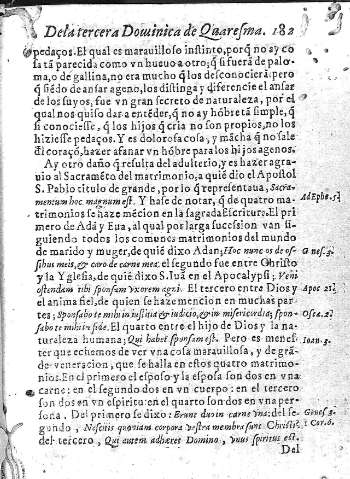 Dela tercera Dominica de Quaresma. 182
pedaços. El qual es marauilloso instinto, porq̃ no ay co
sa tã parecida como vn hueuo a otro; q̃ si fuerà de palo-
ma, o de gallina, no era mucho q̃ los desconociera: pero
q̃ siẽdo de ansar ageno, los distinga y diferencie el ansar
de los suyos, fue vn gran secreto de naturaleza, por el
qual nos quiso dar a entẽder, q̃ no ay hõbre tã simple, q̃
si conociesse, q̃ los hijos q̃ cria no son propios, no los
hiziesse pedaços. Y es dolorosa cosa, y mãcha q̃ no sale
del coraçõ, hazer afanar vn hõbre para los hijos agenos.
Ay otro daño q̃ resulta del adulterio, y es hazer agra-
uio al Sacramẽto del matrimonio, a quiẽ dio el Apostol
S. Pablo titulo de grande, por lo q̃ representaua, Sacra-
mentum hoc magnum est. Y hase de notar, q̃ de quatro ma-
Ad Ephe. 5.
trimonios se haze mẽcion en la sagrada Escritura. El pri
mero de Adã y Eua, al qual por larga sucession van si-
guiendo todos los comunes matrimonios del mundo
de marido y muger, de quiẽ dixo Adan; Hoc nunc os de os-
Gnes. 3.
sibus meis, & caro de carne mea: el segundo fue entre Christo
y la Yglesia, de quiẽ dixo S. Iuã en el Apocalypsi; Veni
ostendam tibi sponsam vxorem agni. El tercero entre Dios y
Apoc. 21.
el anima fiel, de quien se haze mencion en muchas par
tes; Sponsabo te mihi in iustitia & iudicio, & in misericordia; spon-
Osee. 2.
sabo te mihi in fide. El quarto entre el hijo de Dios y la na-
turaleza humana; Qui habet sponsam est. Pero es menes-
Ioan. 3.
ter que echemos de ver vna cosa marauillosa, y de grã-
de veneracion, que se halla en estos quatro matrimo-
nios. En el primero el esposo y la esposa son dos en vna
carne: en el segundo dos en vn cuerpo: en el tercero
son dos en vn espiritu: en el quarto son dos en vna per-
sona. Del primero se dixo: Erunt duo in carne vna: del se-
Gines. 3.
gundo, Nescitis quoniam corpora vestra membra sunt Christi:
1. Cor. 6.
del tercero, Qui autem adhaeret Domino, vnus spiritus est.
Del